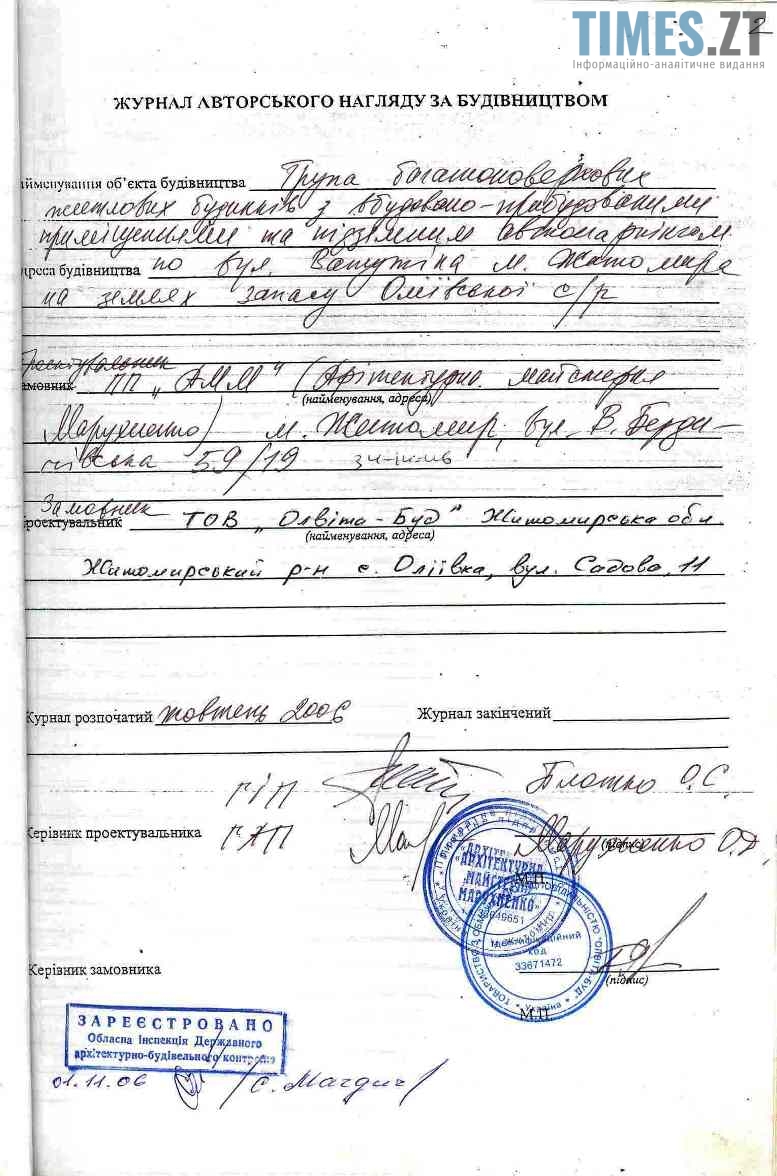 2
TIMES.ZT
Інформаційно-аналітичне видання
ЖУРНАЛ АВТОРСЬКОГО НАГЛЯДУ ЗА БУДІВНИЦТВОМ
айменування об’єкта будівництва Група багатоповерхових
житлових будинків з вбудовано-прибудованими
приміщеннями та підземним автопаркінгом
дреса будівництва по вул. Ватутіна м. Житомира
на землях запасу Оліївської с/р
Проектувальник
амовник ПП „АММ“ (Архітектурна майстерня
(найменування, адреса)
Марухненко) м. Житомир, вул. В. Берди-
чівська 59/19
Замовник
роектувальник ТОВ „Олвіта-Буд“ Житомирська обл.
(найменування, адреса)
Житомирський р-н с. Оліївка, вул. Садова, 11
Журнал розпочатий жовтень 2006 Журнал закінчений
ГІП Плотко О.С.
Керівник проектувальника ГАП Марухненко О.Д.
(підпис)
"АРХІТЕКТУРНА
МАЙСТЕРНЯ
МАРУХНЕНКО"
М.П.
м. Житомир
Ідентифікаційний
код
33671472
ТОВАРИСТВО З ОБМЕЖЕНОЮ ВІДПОВІДАЛЬНІСТЮ "ОЛВІТА-БУД" * Україна *
Керівник замовника
(підпис)
М.П.
ЗАРЕЄСТРОВАНО
Обласна Інспекція Державного
архітектурно-будівельного контролю
01.11.06